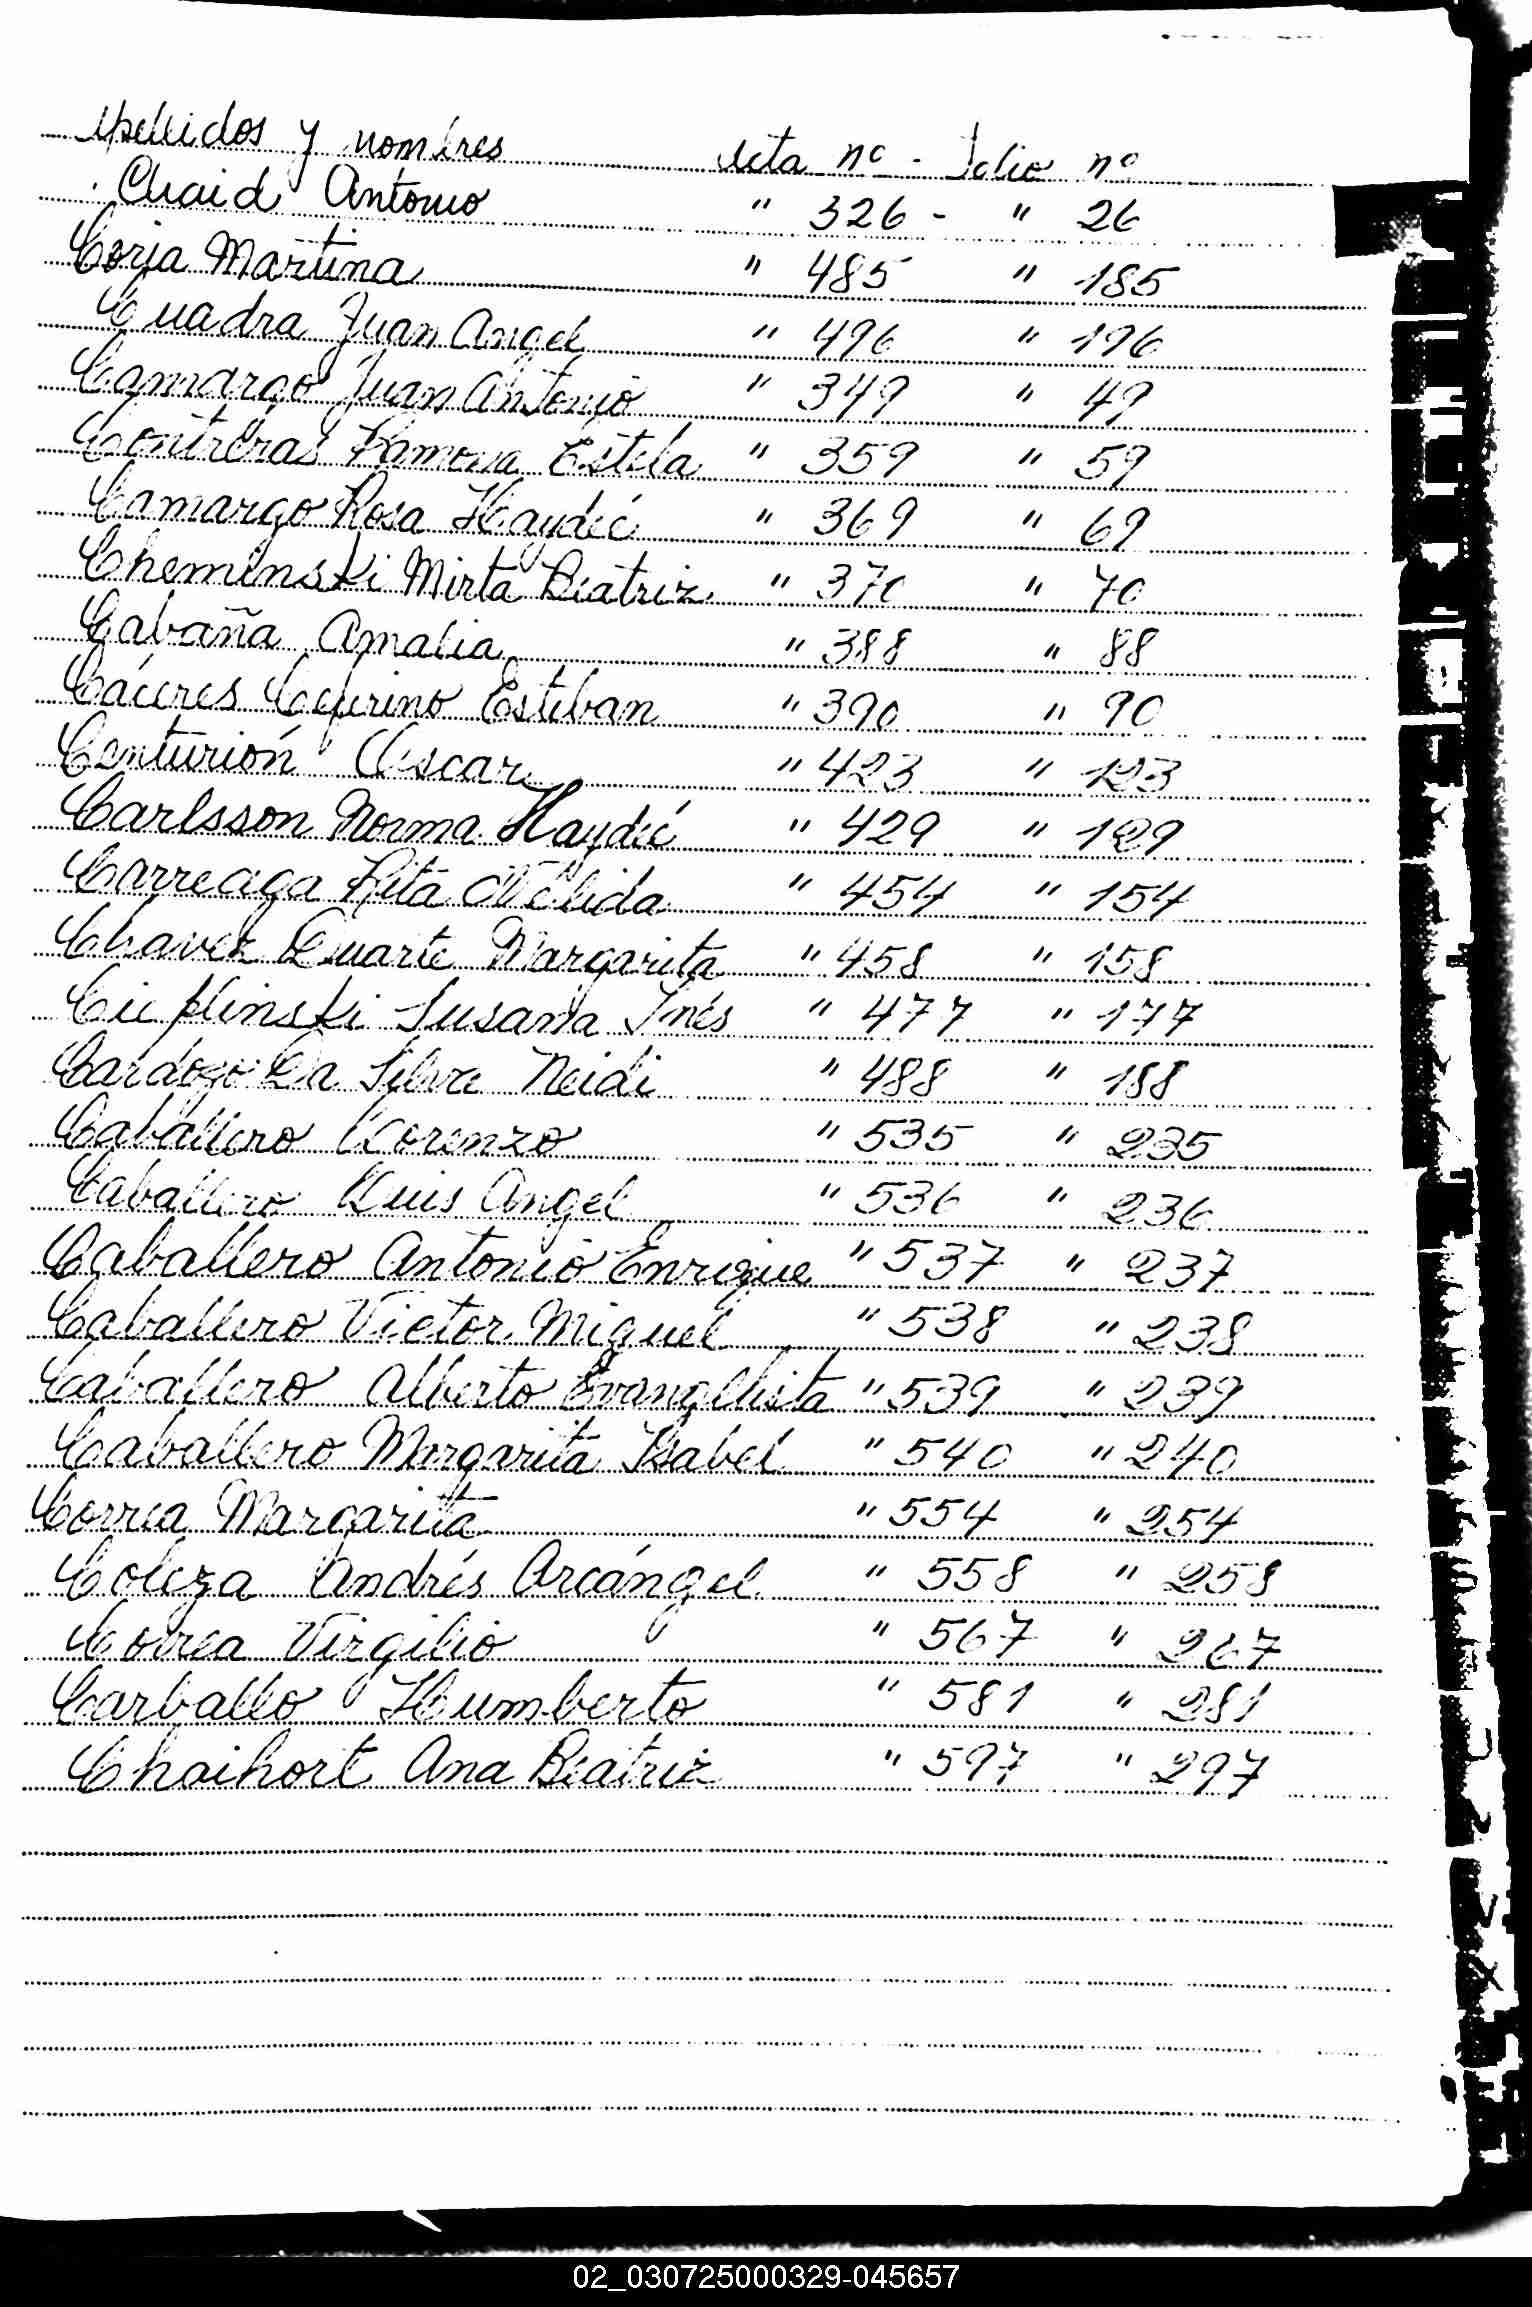 Apellidos y nombres Acta nº - Folio nº
Chaid Antonio " 326 - " 26
Coria Martina " 485 " 185
Cuadra Juan Angel " 496 " 196
Camargo Juan Antonio " 349 " 49
Contreras Ramona Estela " 359 " 59
Camargo Rosa Haydeé " 369 " 69
Cheminski Mirta Beatriz " 370 " 70
Cabaña Amalia " 388 " 88
Cáceres Ceferino Esteban " 390 " 90
Centurión Oscar " 423 " 123
Carlsson Norma Haydeé " 429 " 129
Carreaga Rita Nélida " 454 " 154
Chavez Duarte Margarita " 458 " 158
Cieplinski Susana Inés " 477 " 177
Cardozo Da Silva Neidi " 488 " 188
Caballero Lorenzo " 535 " 235
Caballero Luis Angel " 536 " 236
Caballero Antonio Enrique " 537 " 237
Caballero Victor Miguel " 538 " 238
Caballero Alberto Evangelista " 539 " 239
Caballero Margarita Isabel " 540 " 240
Correa Margarita " 554 " 254
Coleza Andrés Arcángel " 558 " 258
Correa Virgilio " 567 " 267
Carballo Humberto " 581 " 281
Chaihort Ana Beatriz " 597 " 297
02_030725000329-045657